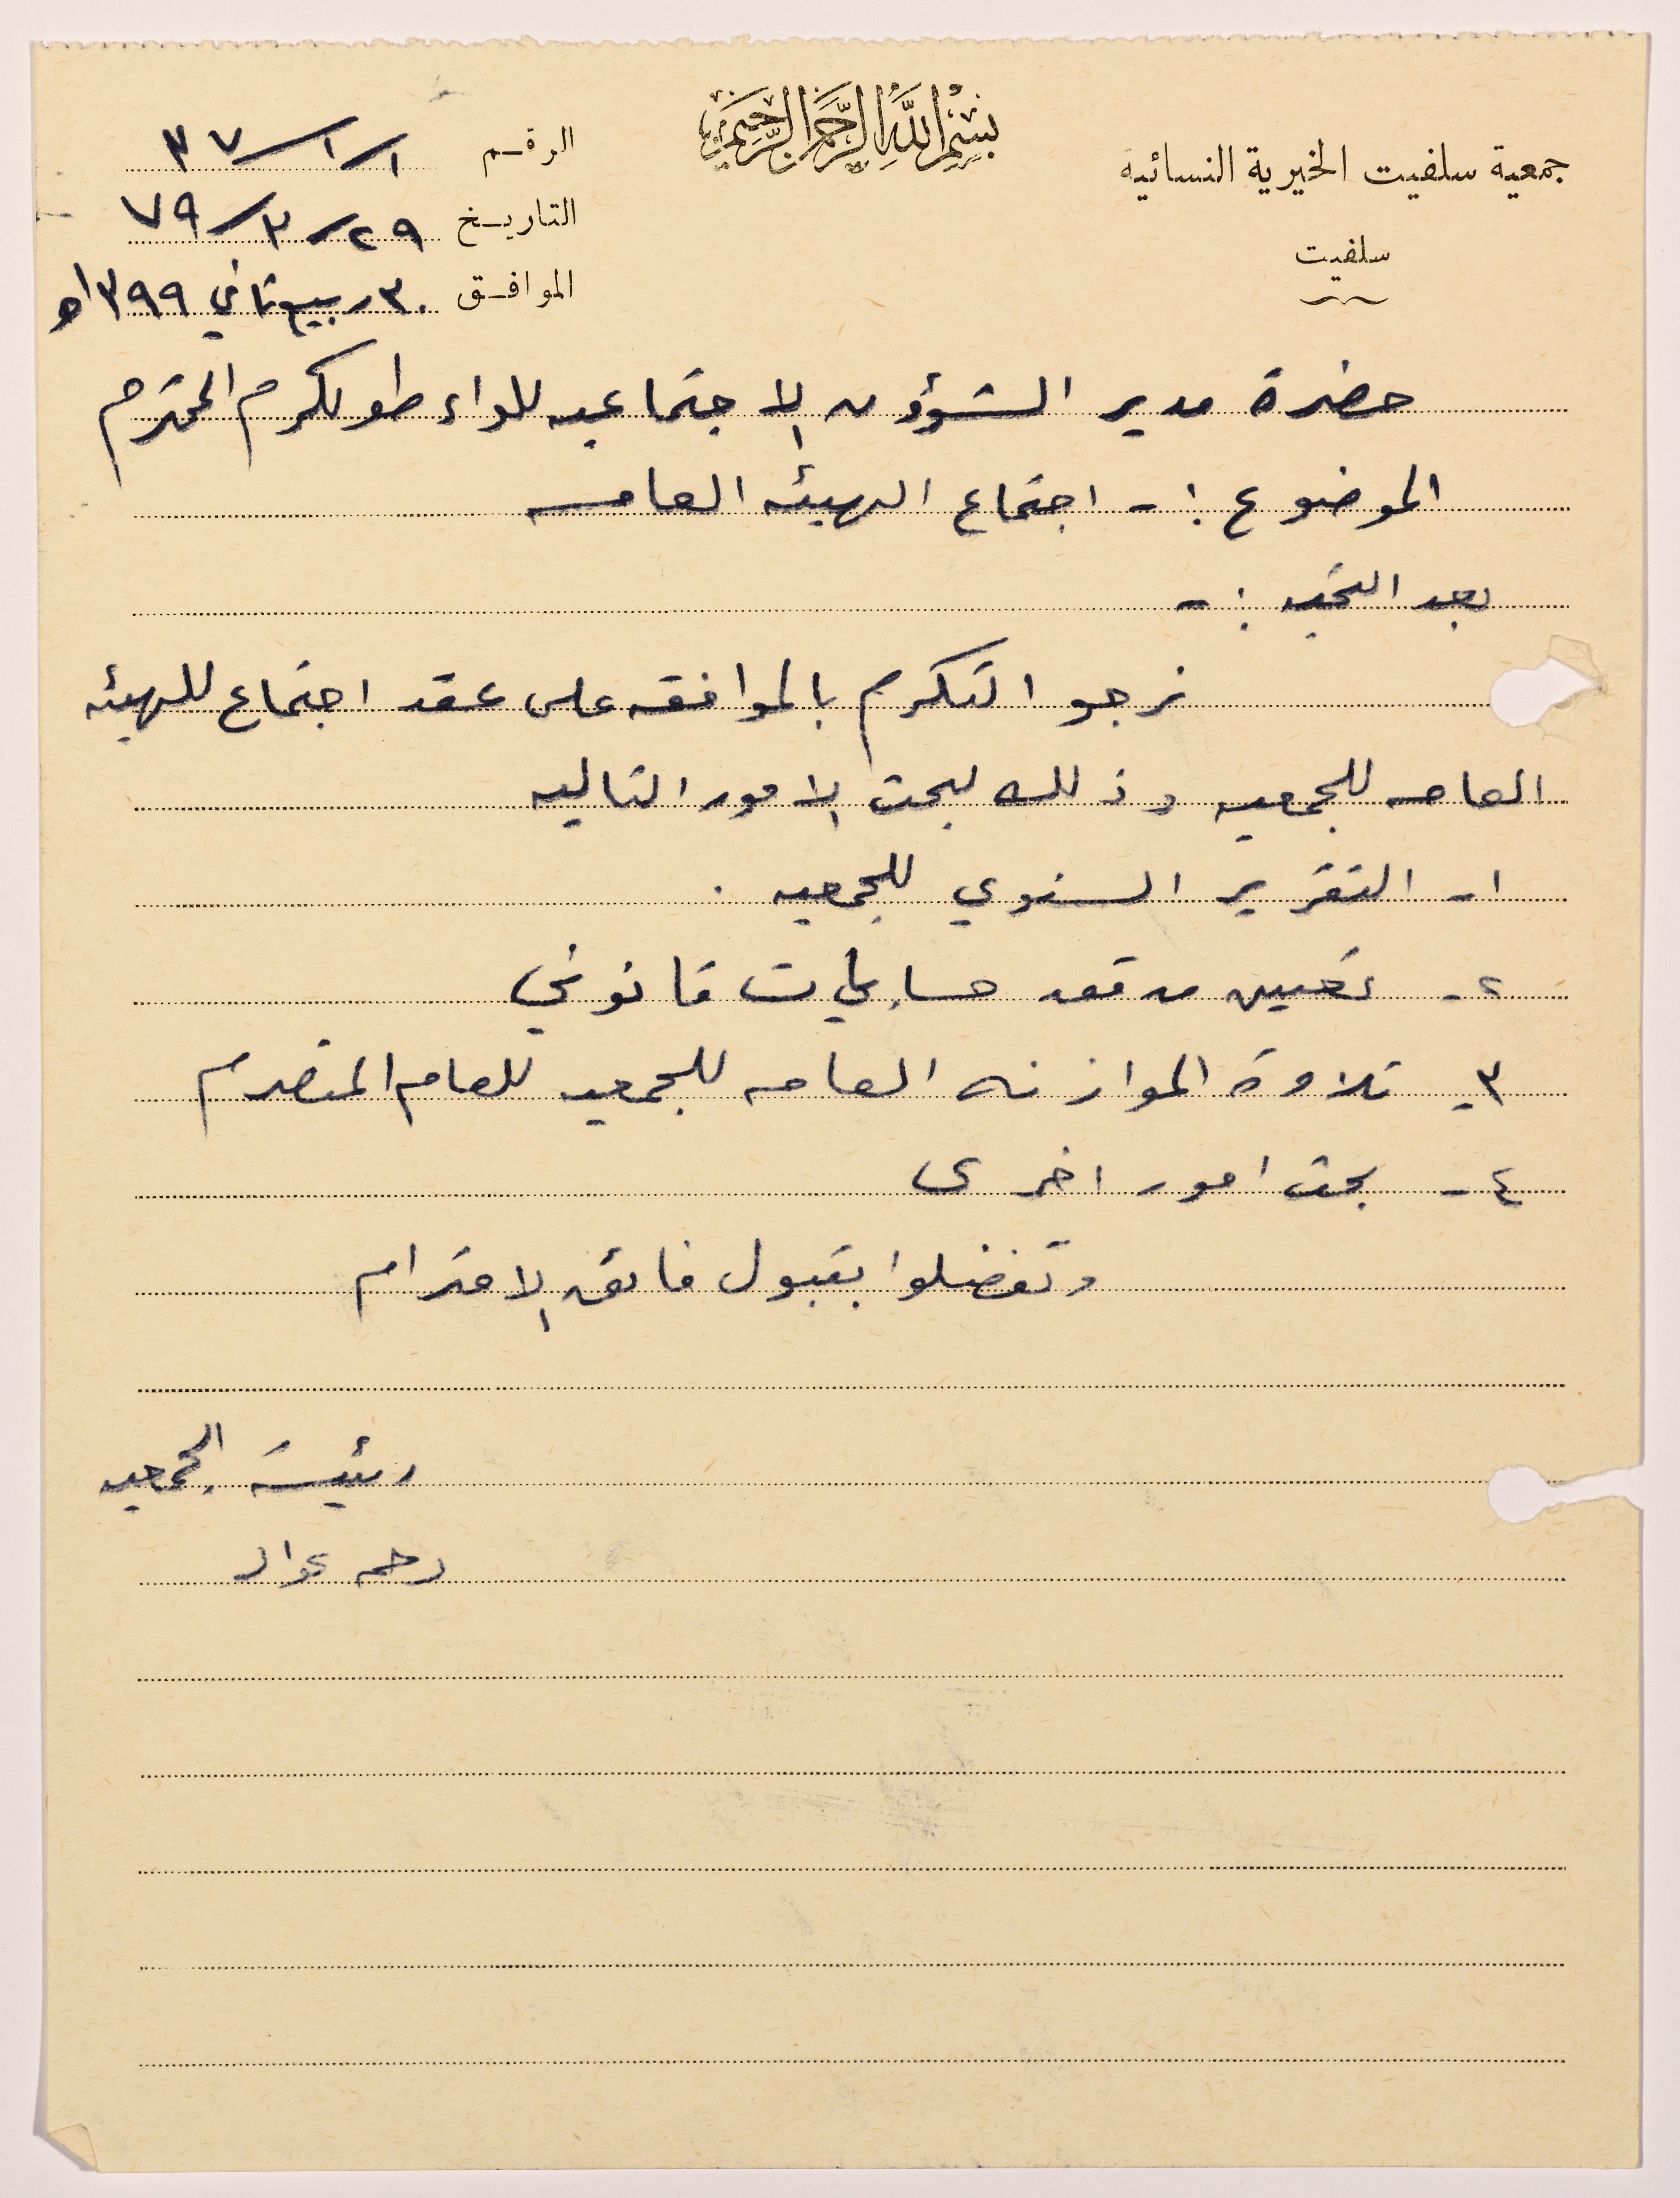 بسم الله الرحمن الرحيم
جمعية سلفيت الخيرية النسائية
سلفيت
الرقم ١/١/٣٧
التاريخ ٢٩/٣/٧٩
الموافق ٣٠ ربيع ثاني ١٣٩٩ه
حضرة مدير الشؤون الاجتماعيه للواء طولكرم المحترم
الموضوع :- اجتماع الهيئه العامه
بعد التحيه :-
نرجو التكرم بالموافقه على عقد اجتماع للهيئه
العامه للجمعيه وذلك لبحث الامور التاليه
١- التقرير السنوي للجمعيه .
٢- تعيين مدقق حسابات قانوني
٣- تلاوة الموازنه العامه للجمعيه للعام المنصرم
٤- بحث امور اخرى
وتفضلوا بقبول فائق الاحترام
رئيسة الجمعيه